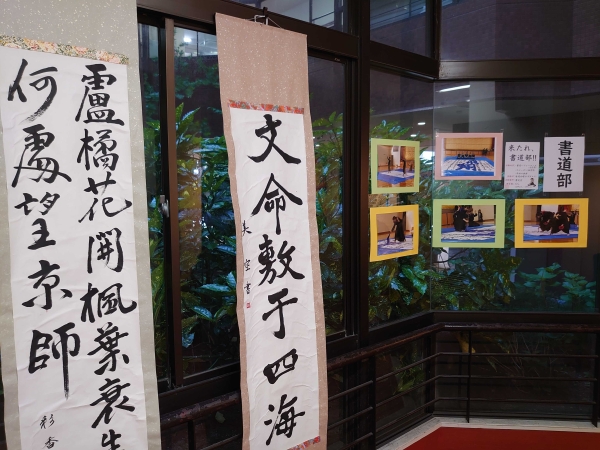 盧橘花開楓葉衰
何處望京師
文命敷于四海
来たれ、
書道部!!
書道部